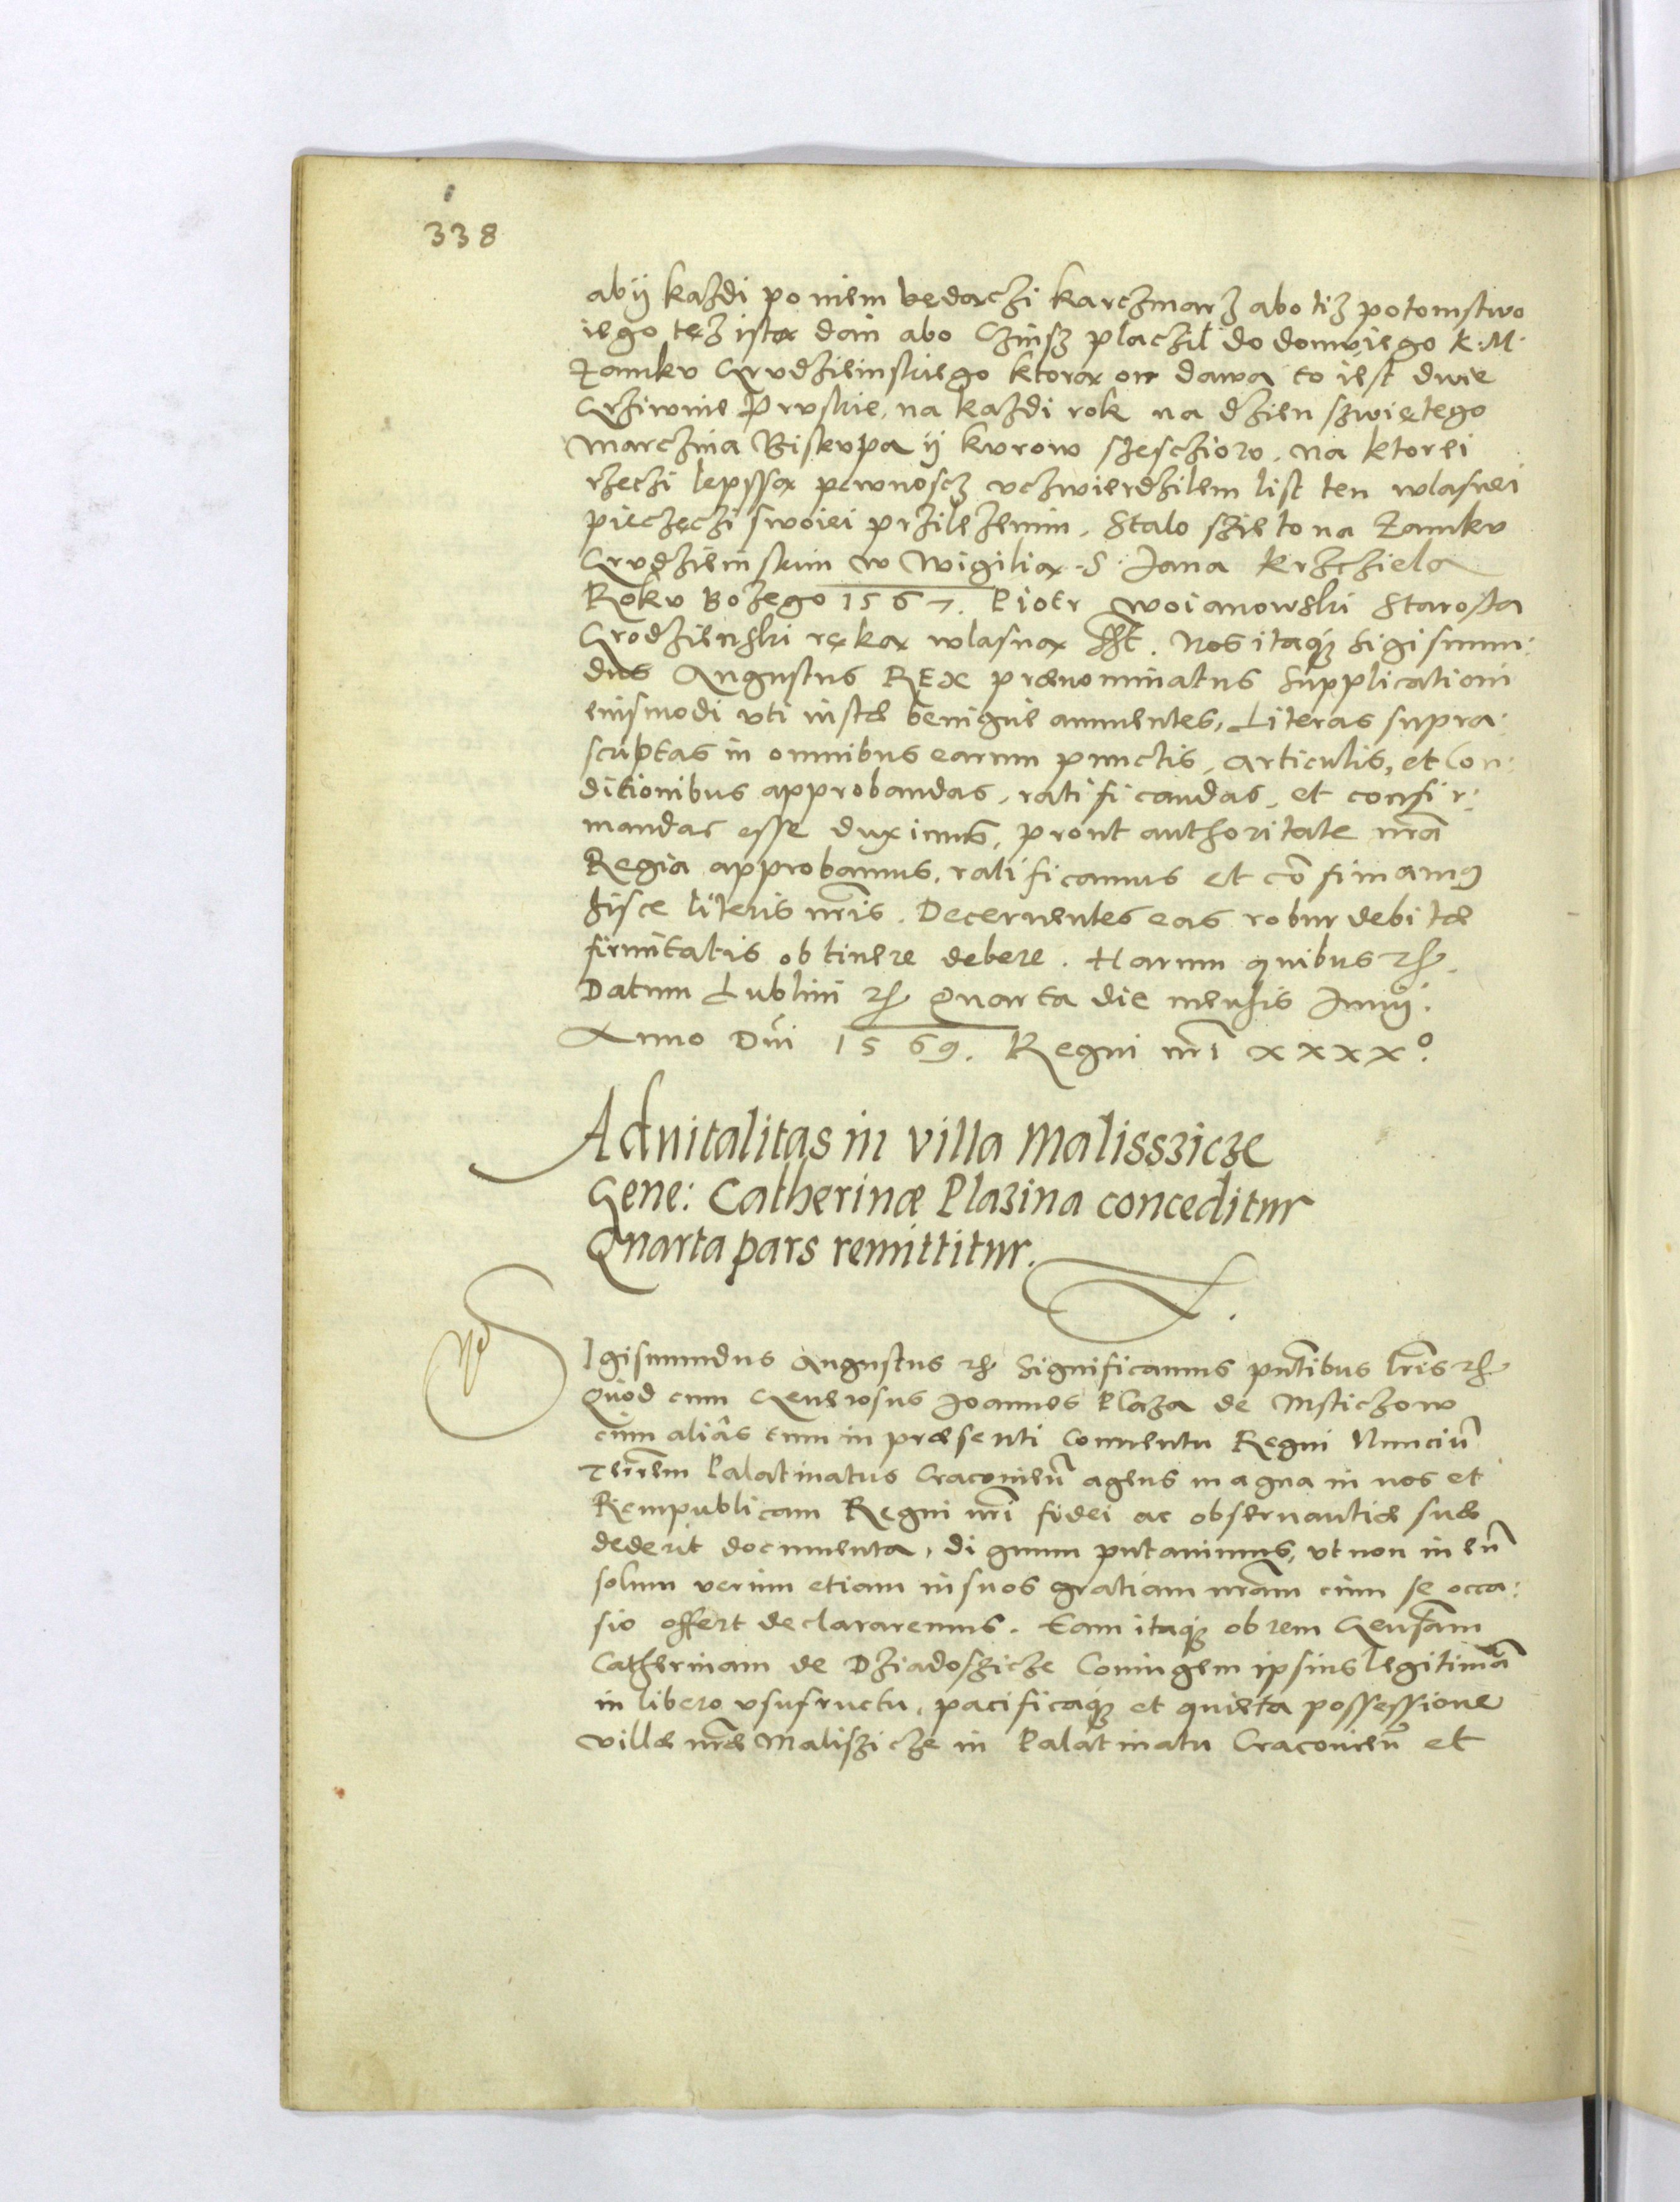 338
abÿ każdi po niem będączi karczmarz abo tiż potomstwo
iego tęż istą dan abo Czinsz placzil do domu iego K. M.
Zamku Grudzieinskiego ktorą on dawa to iest dwie
Grziwnie Pruskie, na każdi rok na dzien szwiętego
Marczina Biskupa ÿ kurow szesczioro. Na ktorei
rzeczi lepssą pewnoscz uczwierdzilem list ten wlasnei
pieczęczi swoiei przileżenim. Stalo szie to na Zamku
Grudzieinskim w Wigilią S. Jana Krzcziela
Roku Bożego 1567. Piotr Woianowski Starosta
Grodzienski ręką wlasną sst. Nos itaq₃ Sigismun:
dus Augustus REX prænominatus Supplicationi
eiusmodi uti iustæ benigne annuentes, Literas supra:
scriptas in omnibus earum punctis, articulis, et Con:
ditionibus approbandas, ratificandas, et confir:
mandas esse duximus, prout authoritate nr̃a
Regia approbamus, ratificamus et cõfirmamꝰ
hisce literis nr̃is. Decernentes eas robur debitæ
firmitatis obtinere debere. Harum quibus ꝛc̃.
Datum Lublini ꝛc̃ Quarta die mensis Junÿ.
Anno Dñi 1569. Regni nr̃i xxxx°.
Aduitalitas in villa Malisszicze
Gene: Catherinæ Plazina conceditur
Quarta pars remittitur.
SIgismundus Augustus ꝛc̃ Significamus pñtibus lr̃is ꝛc̃
Quod cum Generosus Joannes Plaza de Msticzow
cum aliâs tum in præsenti Conuentu Regni Nunciũ
Terr̃em Palatinatus Cracouieñ agens magna in nos et
Rempublicam Regni nr̃i fidei ac obseruantiæ suæ
dederit documenta, dignum putauimus, ut non in eũ
solum uerum etiam in suos gratiam nr̃am cum se occa:
sio offert declararemus. Eam itaq₃ ob rem Gensam
Catherinam de Dziadoszicze Coniugem ipsius legitimã
in libero usufructu, pacificaq₃ et quieta possessione
uillæ nr̃æ Maliszicze in Palatinatu Cracouieñ et